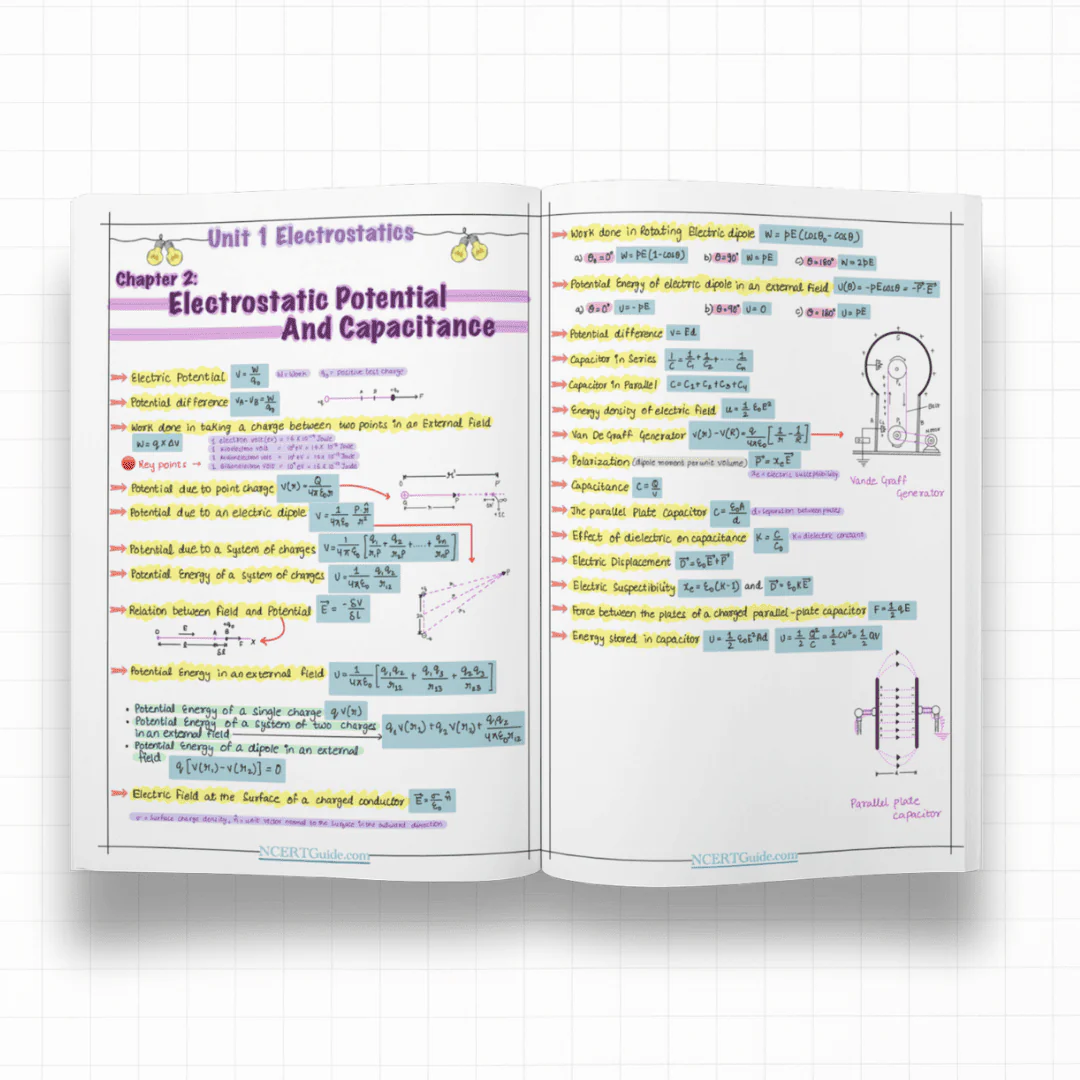 Unit 1 Electrostatics
Chapter 2:
Electrostatic Potential
And Capacitance
Electric Potential V = W/q₀ W = Work q₀ = positive test charge
Potential difference V_A - V_B = W/q₀
Work done in taking a charge between two points in an External Field
W = q × ΔV
Key points →
Potential due to point charge V(r) = Q/4πε₀r
Potential due to an electric dipole V = 1/4πε₀ P.r̂/r²
Potential due to a System of charges V = 1/4πε₀ [q₁/r₁P + q₂/r₂P + .... + qₙ/rₙP]
Potential Energy of a system of charges U = 1/4πε₀ q₁q₂/r₁₂
Relation between field and Potential E⃗ = -δV/δl
Potential Energy in an external field U = 1/4πε₀ [q₁q₂/r₁₂ + q₁q₃/r₁₃ + q₂q₃/r₂₃]
• Potential Energy of a single charge q V(r)
• Potential Energy of a system of two charges
in an external field q₁ V(r₁) + q₂ V(r₂) + q₁q₂/4πε₀r₁₂
• Potential Energy of a dipole in an external
field
q [V(r₁) - V(r₂)] = 0
Electric Field at the Surface of a charged conductor E⃗ = σ/ε₀ n̂
σ = Surface charge density, n̂ = unit vector normal to the surface in the outward direction
NCERTGuide.com
Work done in Rotating Electric dipole W = pE (cosθ₀ - cosθ)
a) θ₀ = 0° W = PE (1-cosθ) b) θ = 90° W = pE c) θ = 180° W = 2pE
Potential Energy of electric dipole in an external field U(θ) = -pEcosθ = -P⃗.E⃗
a) θ = 0° U = -PE b) θ = 90° U = 0 c) θ = 180° U = PE
Potential difference V = Ed
Capacitor in Series 1/C = 1/C₁ + 1/C₂ + .... 1/Cₙ
Capacitor in Parallel C = C₁ + C₂ + C₃ + C₄
Energy density of electric field u = 1/2 ε₀E²
Van De Graff Generator V(r) - V(R) = q/4πε₀ [1/r - 1/R]
Polarization (dipole moment per unit volume) P⃗ = χₑE⃗
χₑ = electric susceptibility
Vande Graff
Generator
Capacitance C = Q/V
The parallel Plate Capacitor C = ε₀A/d d = separation between plates
Effect of dielectric on capacitance K = C/C₀ K = dielectric constant
Electric Displacement D⃗ = ε₀E⃗ + P⃗
Electric Suspectibility χₑ = ε₀(K-1) and D⃗ = ε₀KE⃗
Force between the plates of a charged parallel-plate capacitor F = 1/2 qE
Energy stored in Capacitor U = 1/2 ε₀E²Ad U = 1/2 Q²/C = 1/2 CV² = 1/2 QV
Parallel plate
capacitor
NCERTGuide.com